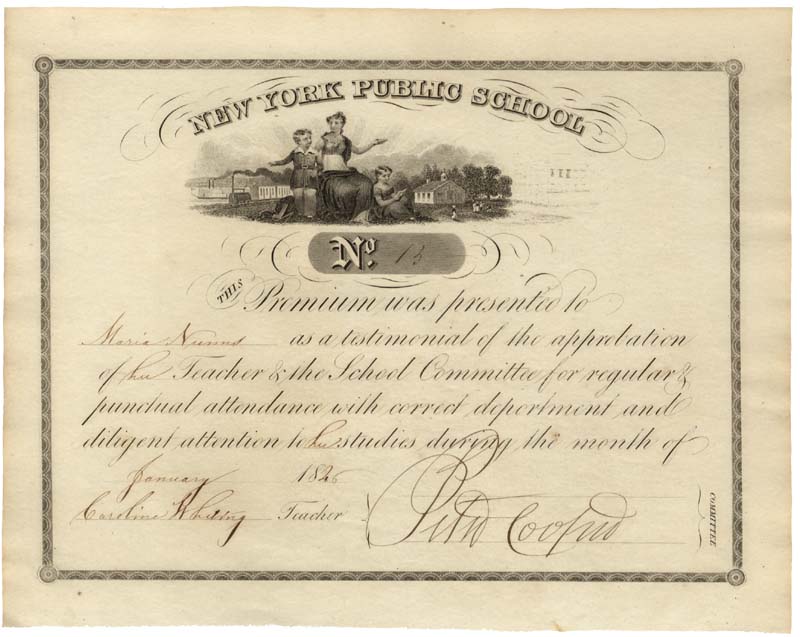 NEW YORK PUBLIC SCHOOL
No. 13
THIS Premium was presented to
Maria Nunns as a testimonial of the approbation
of her Teacher & the School Committee for regular &
punctual attendance with correct deportment and
diligent attention to her studies during the month of
January 18
Caroline Teacher Peter Cooper COMMITTEE